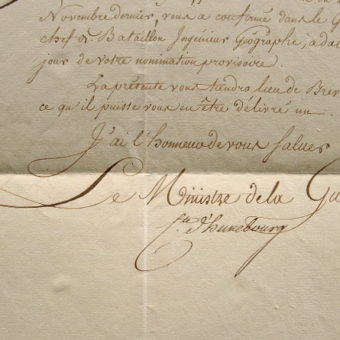 Novembre dernier, vous a confirmé dans le G
chef de Bataillon Ingénieur Géographe, à da
jour de votre nomination provisoire.
La présente vous tiendra lieu de Brev
ce qu'il puisse vous en être délivré un.
J'ai l'honneur de vous saluer
Le Ministre de la Gu
d'hunebourg